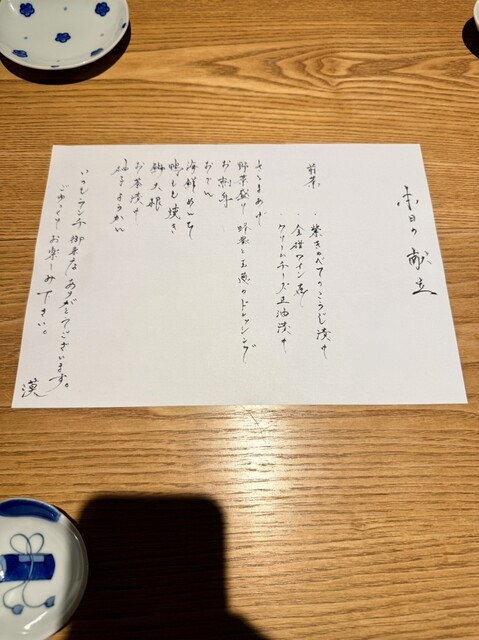 本日の献立
前菜
・紫きゃべつのこうじ漬け
・金柑ワイン煮
・クリームチーズ正油漬け
さつまあげ
野菜盛り と玉葱のドレッシング
お刺身
おでん
海鮮めんち
鴨もも焼き
大根
お茶漬け
柚子ようかん
いつもランチ御来店ありがとうございます。
ごゆっくりお楽しみ下さい。
漠